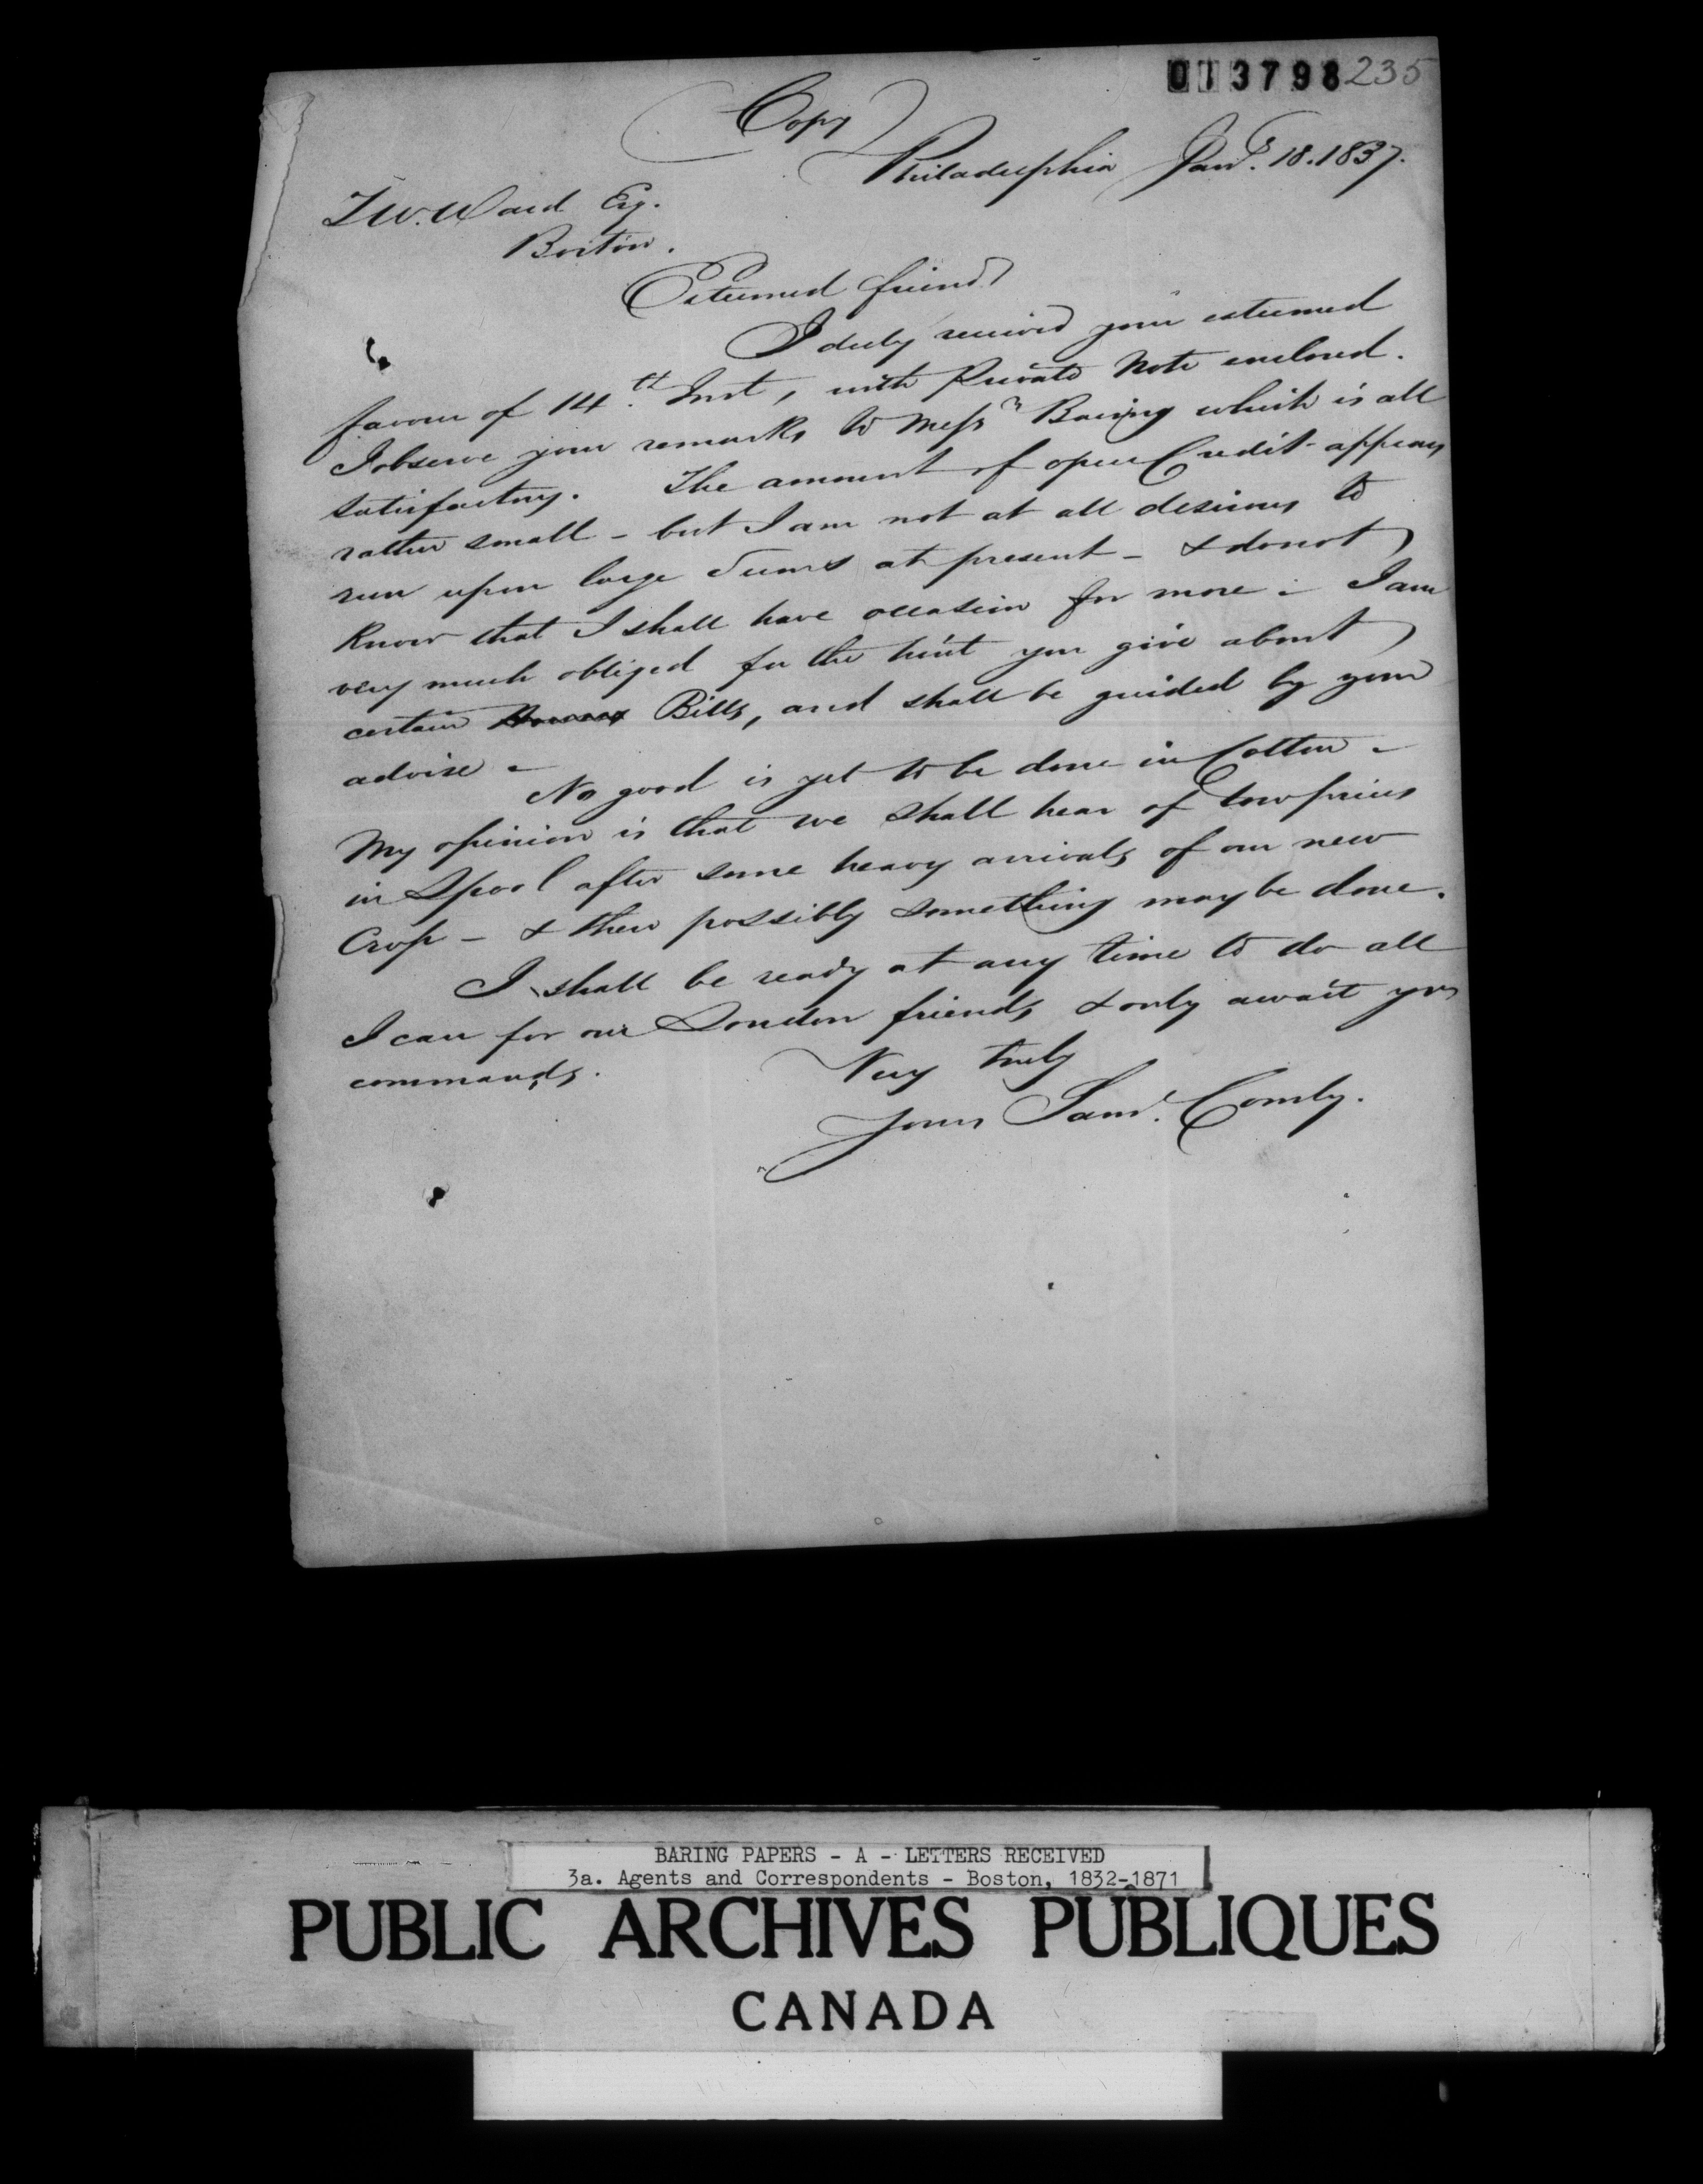 013798 235
Copy
Philadelphia Jany. 18. 1837.
T W. Ward Esq.
Boston.
Esteemed friend
I duly received your esteemed
favour of 14th. Inst, with Private Note enclosed.
I observe your remarks to Messrs Baring which is all
satisfactory. The amount of open Credit appears
rather small - but I am not at all desirous to
run upon large Sums at present - & do not
know that I shall have occasion for more - I am
very much obliged for the hint you give about
certain Bills, and shall be guided by your
advise -
No good is yet to be done in Cotton -
My opinion is that we shall hear of low prices
in Lpool after some heavy arrivals of our new
Crop - & then possibly something may be done.
I shall be ready at any time to do all
I can for our London friends & only await yrs
commands.
Very truly
Yours Saml. Comly.
BARING PAPERS - A - LETTERS RECEIVED
3a. Agents and Correspondents - Boston, 1832-1871
PUBLIC ARCHIVES PUBLIQUES
CANADA